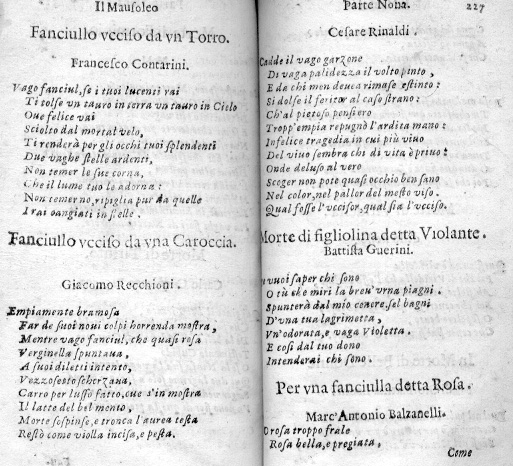 Il Mausoleo
Fanciullo vcciso da vn Torro.
Francesco Contarini.
Vago fanciul, se i tuoi lucenti rai
Ti tolse vn tauro in terra vn tauro in Cielo
Oue felice vai
Sciolto dal mortal velo,
Ti renderà per gli occhi tuoi splendenti
Due vaghe stelle ardenti,
Non temer le sue corna,
Che il lume tuo le adorna:
Non temer no, ripiglia pur da quelle
I rai cangiati in stelle.
Fanciullo vcciso da vna Caroccia.
Giacomo Recchioni.
Empiamente bramosa
Far de suoi noui colpi horrenda mostra,
Mentre vago fanciul, che quasi rosa
Verginella spuntaua,
A suoi diletti intento,
Vezzosetto scherzaua,
Carro per lusso fatto, oue s'in mostra
Il latte del bel mento,
Morte sospinse, e tronca l'aurea testa
Restò come violla incisa, e pesta.
Parte Nona. 227
Cesare Rinaldi.
Cadde il vago garzone
Di vaga palidezza il volto pinto,
E da chi men deuea rimase estinto:
Si dolse il feritor al caso strano:
Ch'al pietoso pensiero
Tropp'empia repugnò l'ardita mano:
Infelice tragedia in cui più viuo
Del viuo sembra chi di vita è priuo:
Onde deluso al vero
Scerger non pote quasi occhio ben sano
Nel color, nel pallor del mesto viso.
Qual fosse l'vccisor, qual sia l'vcciso.
Morte di figliolina detta Violante.
Battista Guerini.
vuoi saper chi sono
O tù che miri la breu'vrna piagni.
Spunterà dal mio cenere, sel bagni
D'vna tua lagrimetta,
Vn'odorata, e vaga Violetta.
E così dal tuo dono
Intenderai chi sono.
Per vna fanciulla detta Rosa.
Marc'Antonio Balzanelli.
O rosa troppo frale
Rosa bella, e pregiata,
Come